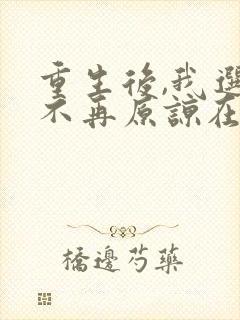 重生後,我選
不再原諒在
橋邊芍藥